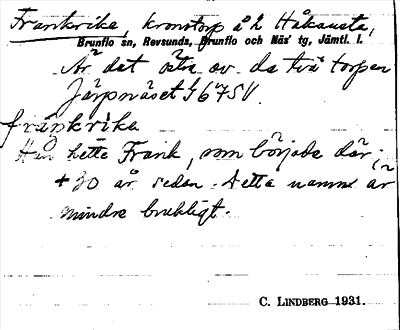 Frankrike, kronotorp å h Håkansta,
Brunflo sn, Revsunds, Brunflo och Näs' tg, Jämtl. l.
Är det östra av de två torpen
Järpnäset G 67SV.
fránkrika
Han hette Frank, som började där;
+ 30 år sedan. Detta namn är
mindre brukligt.
C. LINDBERG 1931.